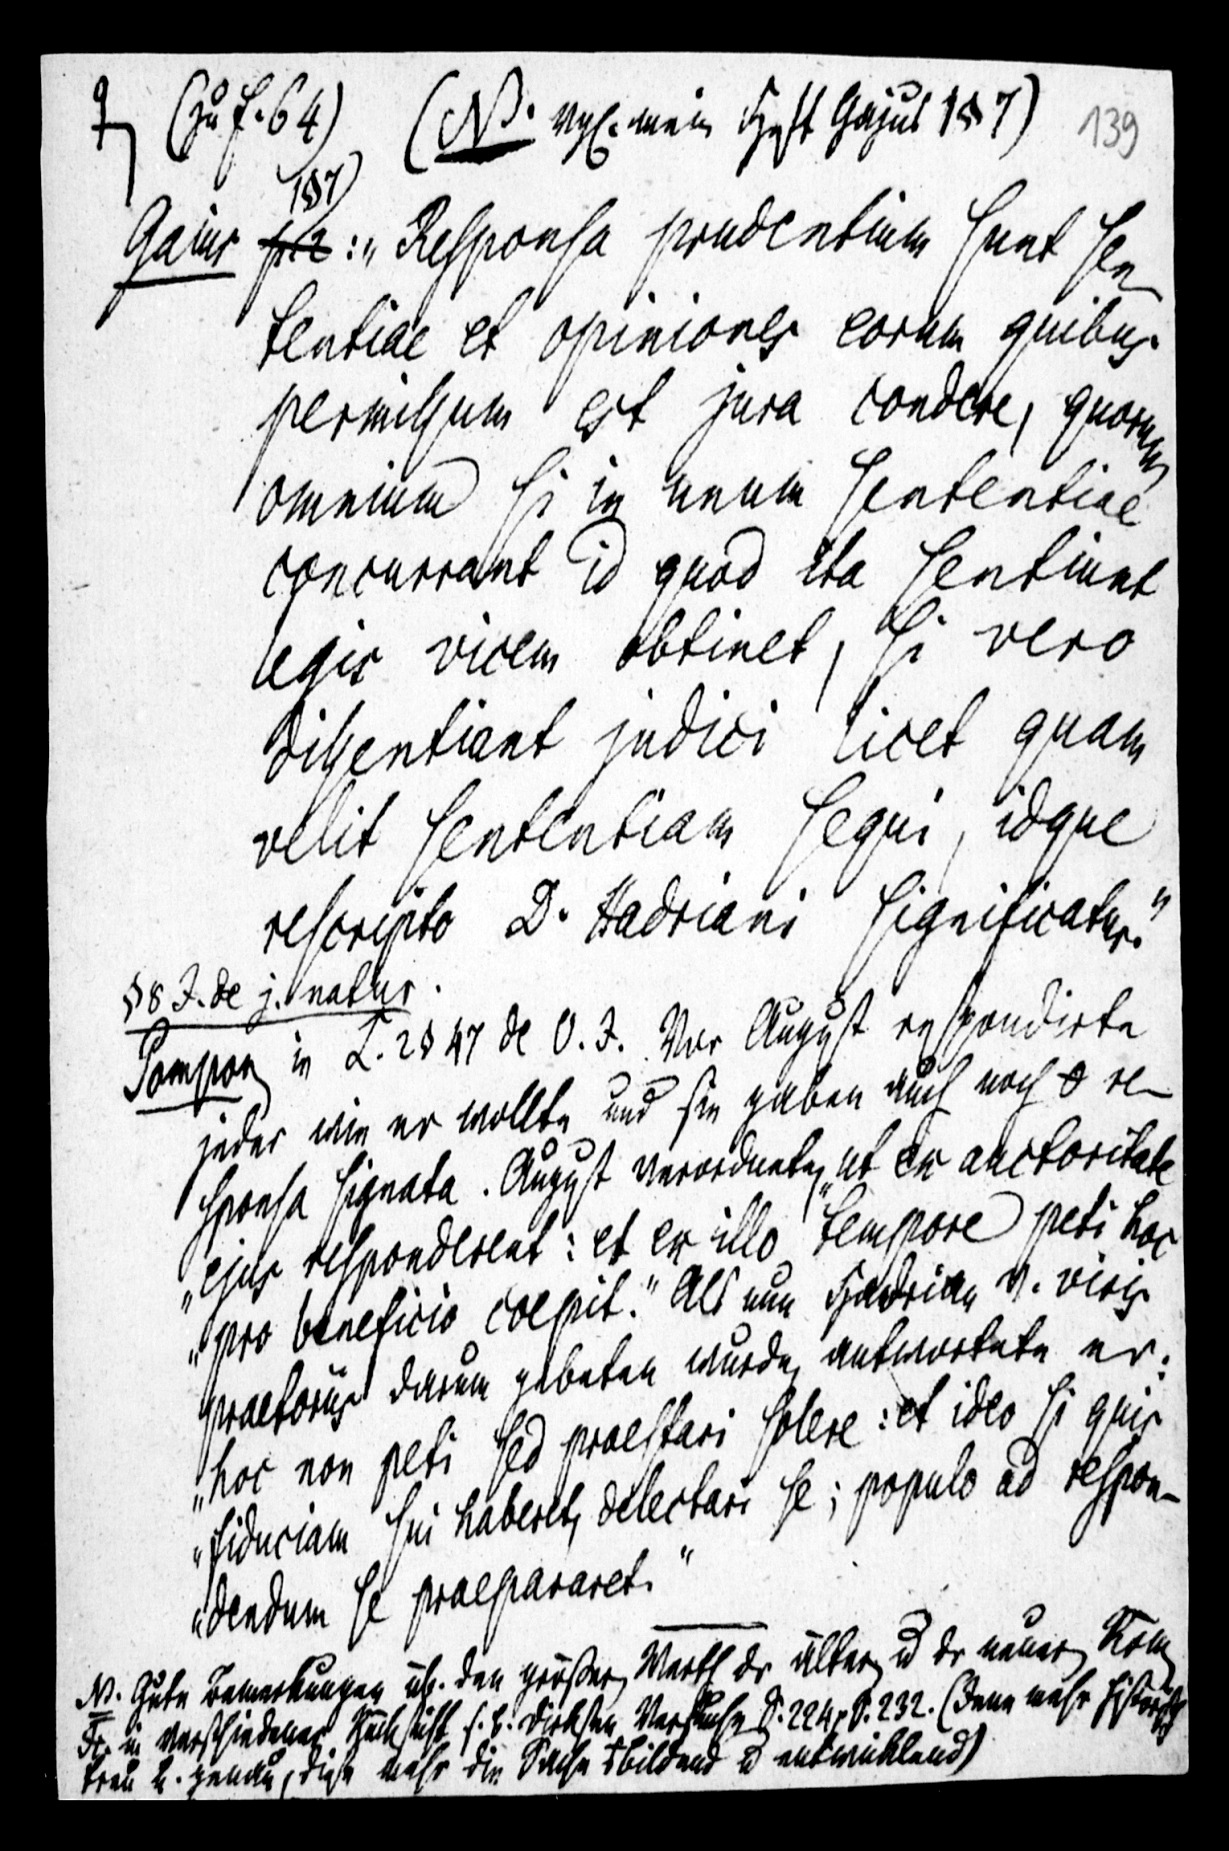 9 (Zu S. 64) (NB. vgl. mein Heft Gajus 1 § 7) 139
1 § 7)
Gaius : „Responsa prudentium sunt sen-
tentiae et opiniones eorum quibus
permissum est jura condere, quorum
omnium si in unum sententiae
concurrant id quod ita sentiunt
legis vicem obtinet, si vero
dissentiant judici licet quam
velit sententiam sequi, idque
rescripto D. Hadriani significatur."
§ 8 J. de j. natur.
Pompon in L. 2 § 47 de O. J. Vor August respondirte
jeder wie er wollte und sie gaben auch noch 0 re-
sponsa signata. August verordnete, „ut ex auctoritate
„ejus responderent: et ex illo tempore peti hoc
„pro beneficio coepit." Als nun Hadrian v. viris
praetoriis darum gebeten wurde, antwortete er:
„hoc non peti sed praestari solere: et ideo si quis
„fiduciam sui haberet, delectari se; populo ad respon-
„dendum se praepararet."
NB. Gute Bemerkungen üb. den großen Werth der älteren u der neuer Röm
in verschiedener Hinsicht s. b. Dirksen Versuche S. 224, S. 232. (Jene mehr historisch
treu u. genau, diese mehr die Sache bildend u entwickelnd)